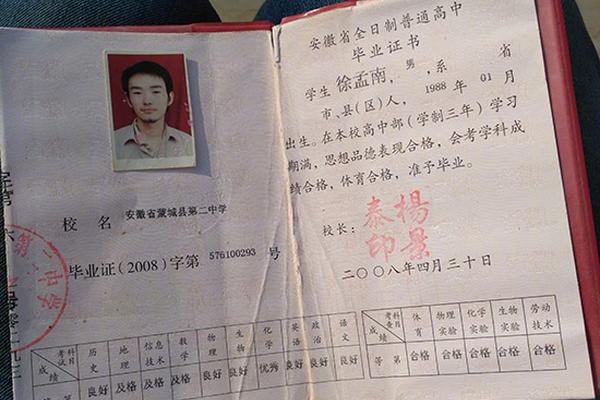 校名 安徽省蒙城县第二中学
毕业证(2008)字第 576100293 号
考试科目 历史 地理 信息技术 数学 物理 生物 化学 英语 政治 语文
成绩 良好 及格 及格 及格 良好 良好 优秀 良好 良好 良好
安徽省全日制普通高中
毕业证书
学生 徐孟南,男,系 省
市、县(区)人,1988年01月
出生。在本校高中部(学制三年)学习
期满,思想品德表现合格,会考学科成
绩合格,体育合格,准予毕业。
校长:
泰楊
印景
二〇〇八年四月三十日
考查科目 体育 物理实验 化学实验 生物实验 劳动技术
等第 合格 合格 合格 合格 合格